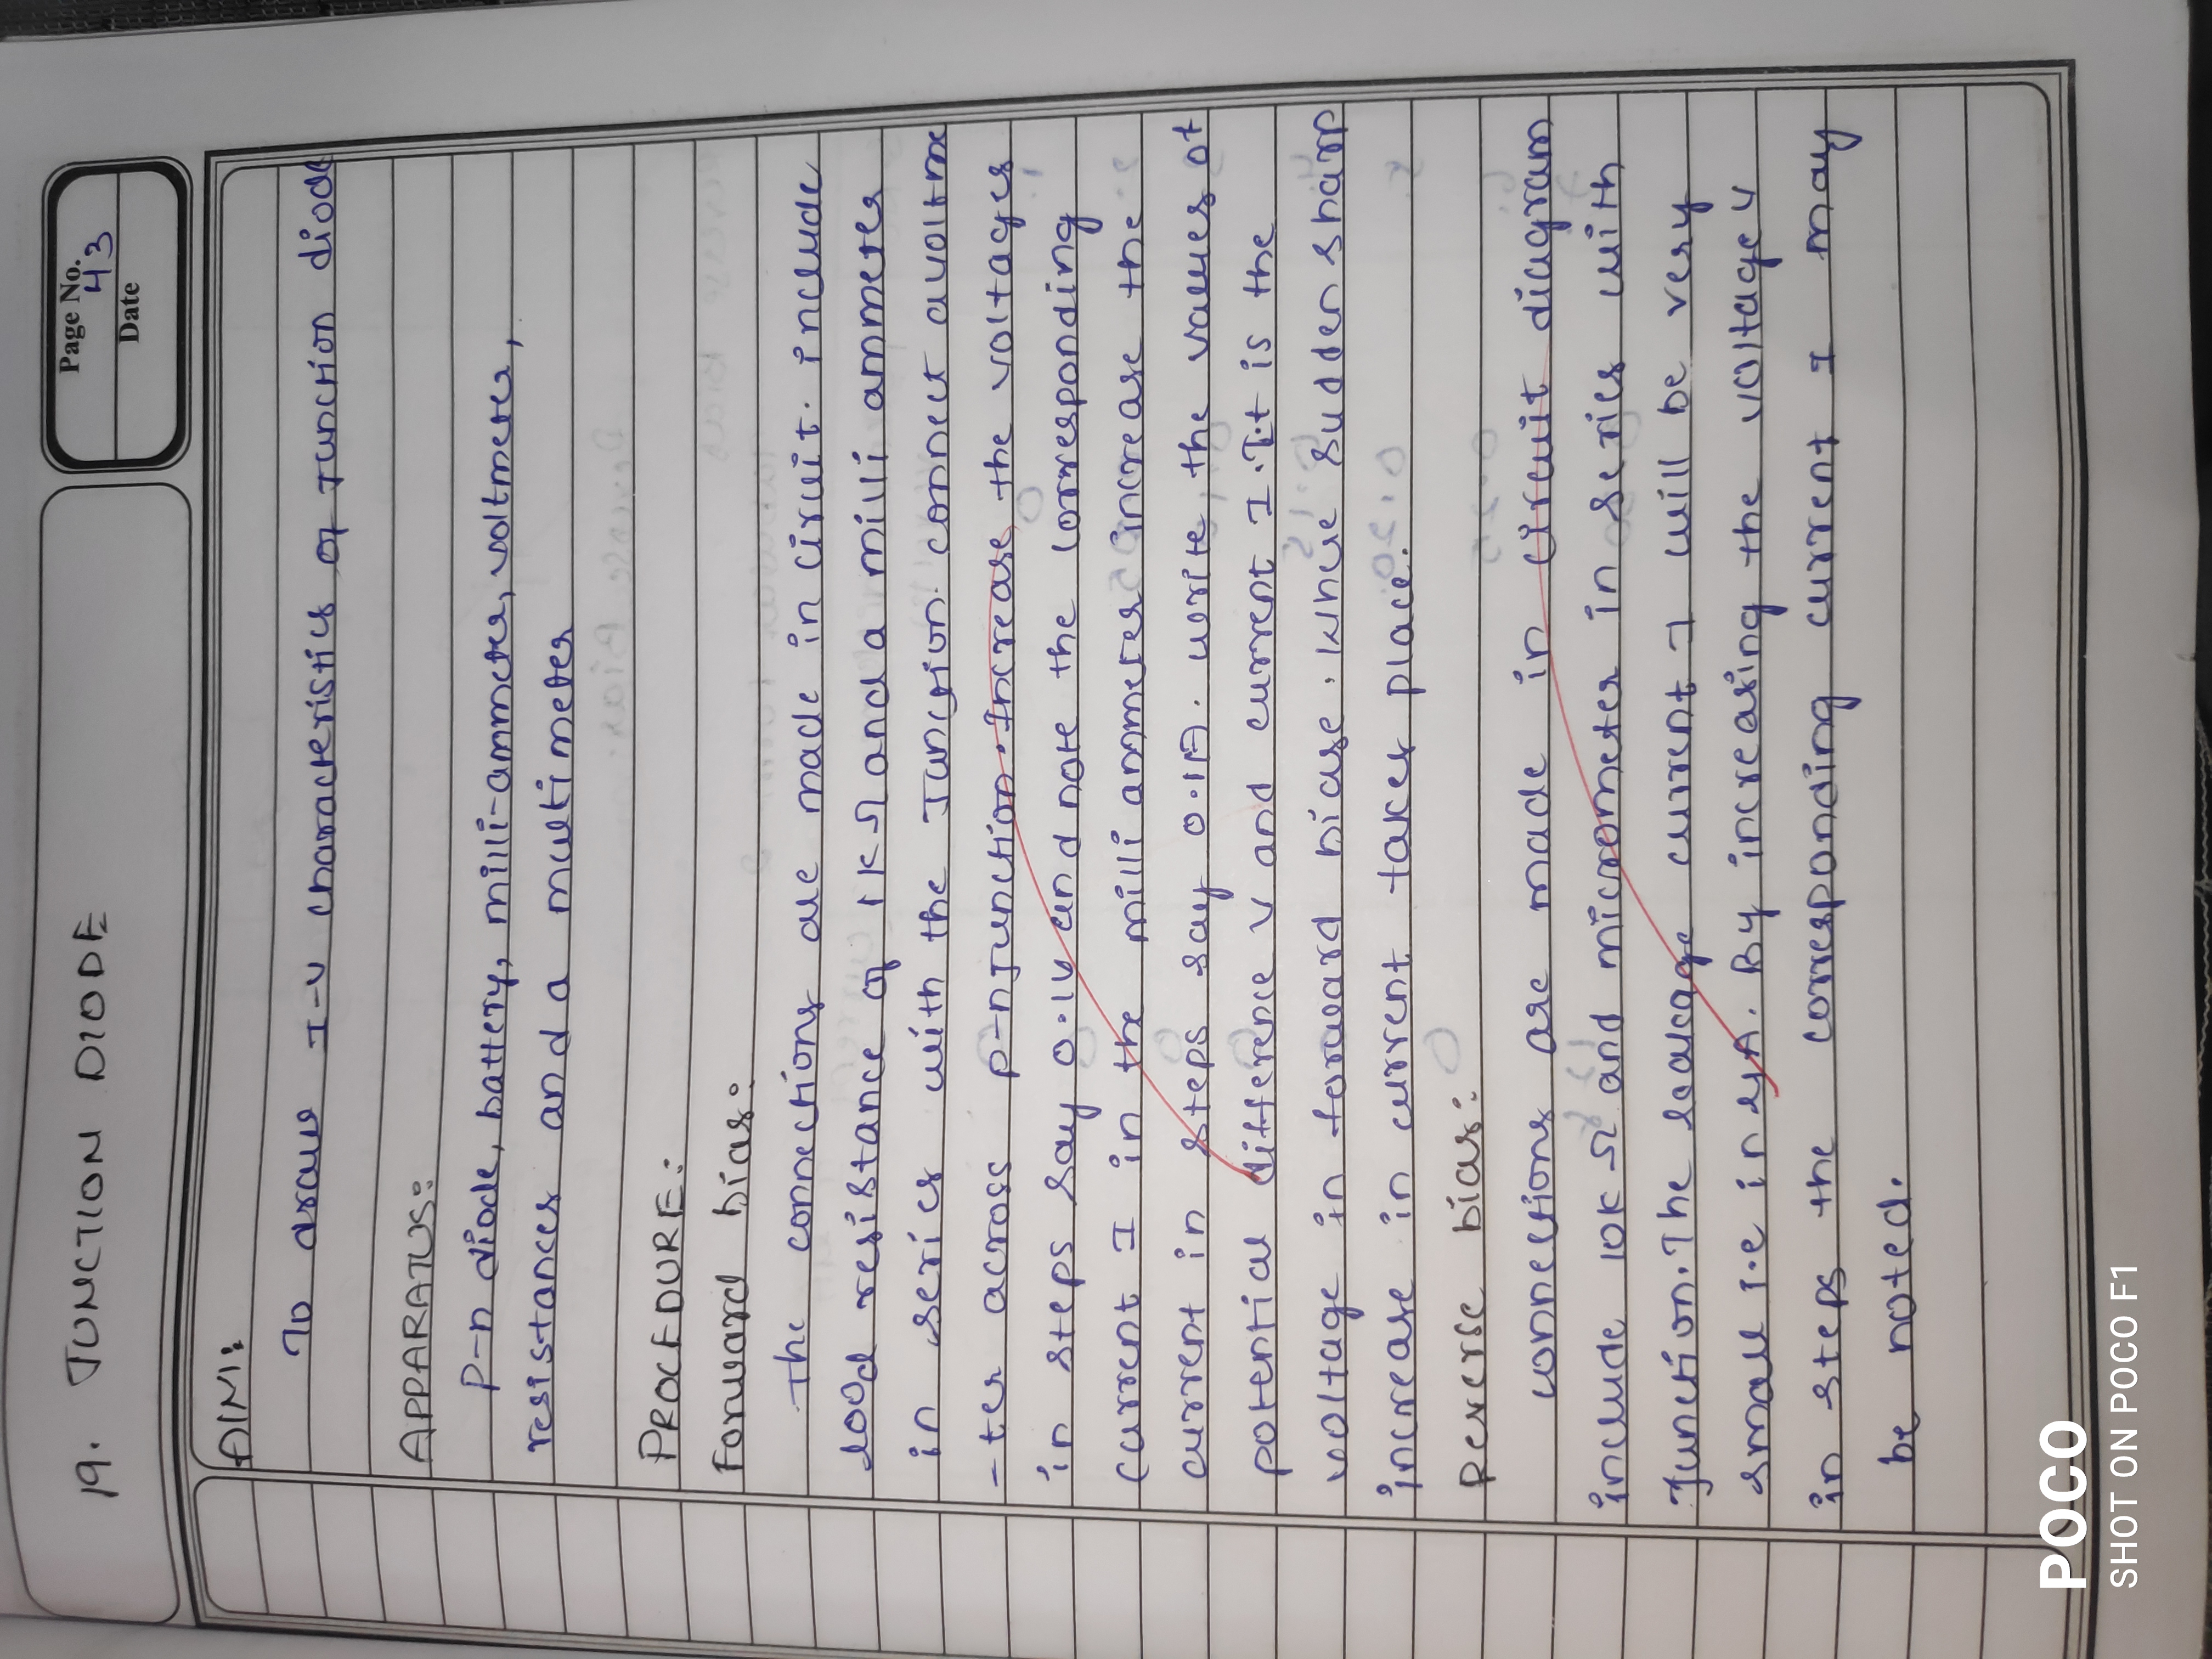 Page No. 43
Date
19. JUNCTION DIODE
AIM:
To draw I-V characteristics of Junction diode
APPARATUS:
P-n diode, battery, milli-ammeter, voltmeter,
resistances and a multimeter
PROCEDURE:
Forward bias:
The connections are made in ciruit. include
load resistance of 1KΩ and a milli ammeter
in series with the Junction. connect avoltme
-ter across p-n Junction. Increase the voltages
in steps say 0.1V and note the corresponding
current I in the milli ammeter increase the
current in steps say 0.1A. write the values of
potential difference V and current I. It is the
voltage in forward biase. Where sudden sharp
increase in current takes place.
Reverse bias:
connections are made in circuit diagram
include 10KΩ and micrometer in series with
Junction. The leakage current I will be very
small i.e in μA. By increasing the voltage V
in steps the corresponding current I may
be noted.
POCO
SHOT ON POCO F1